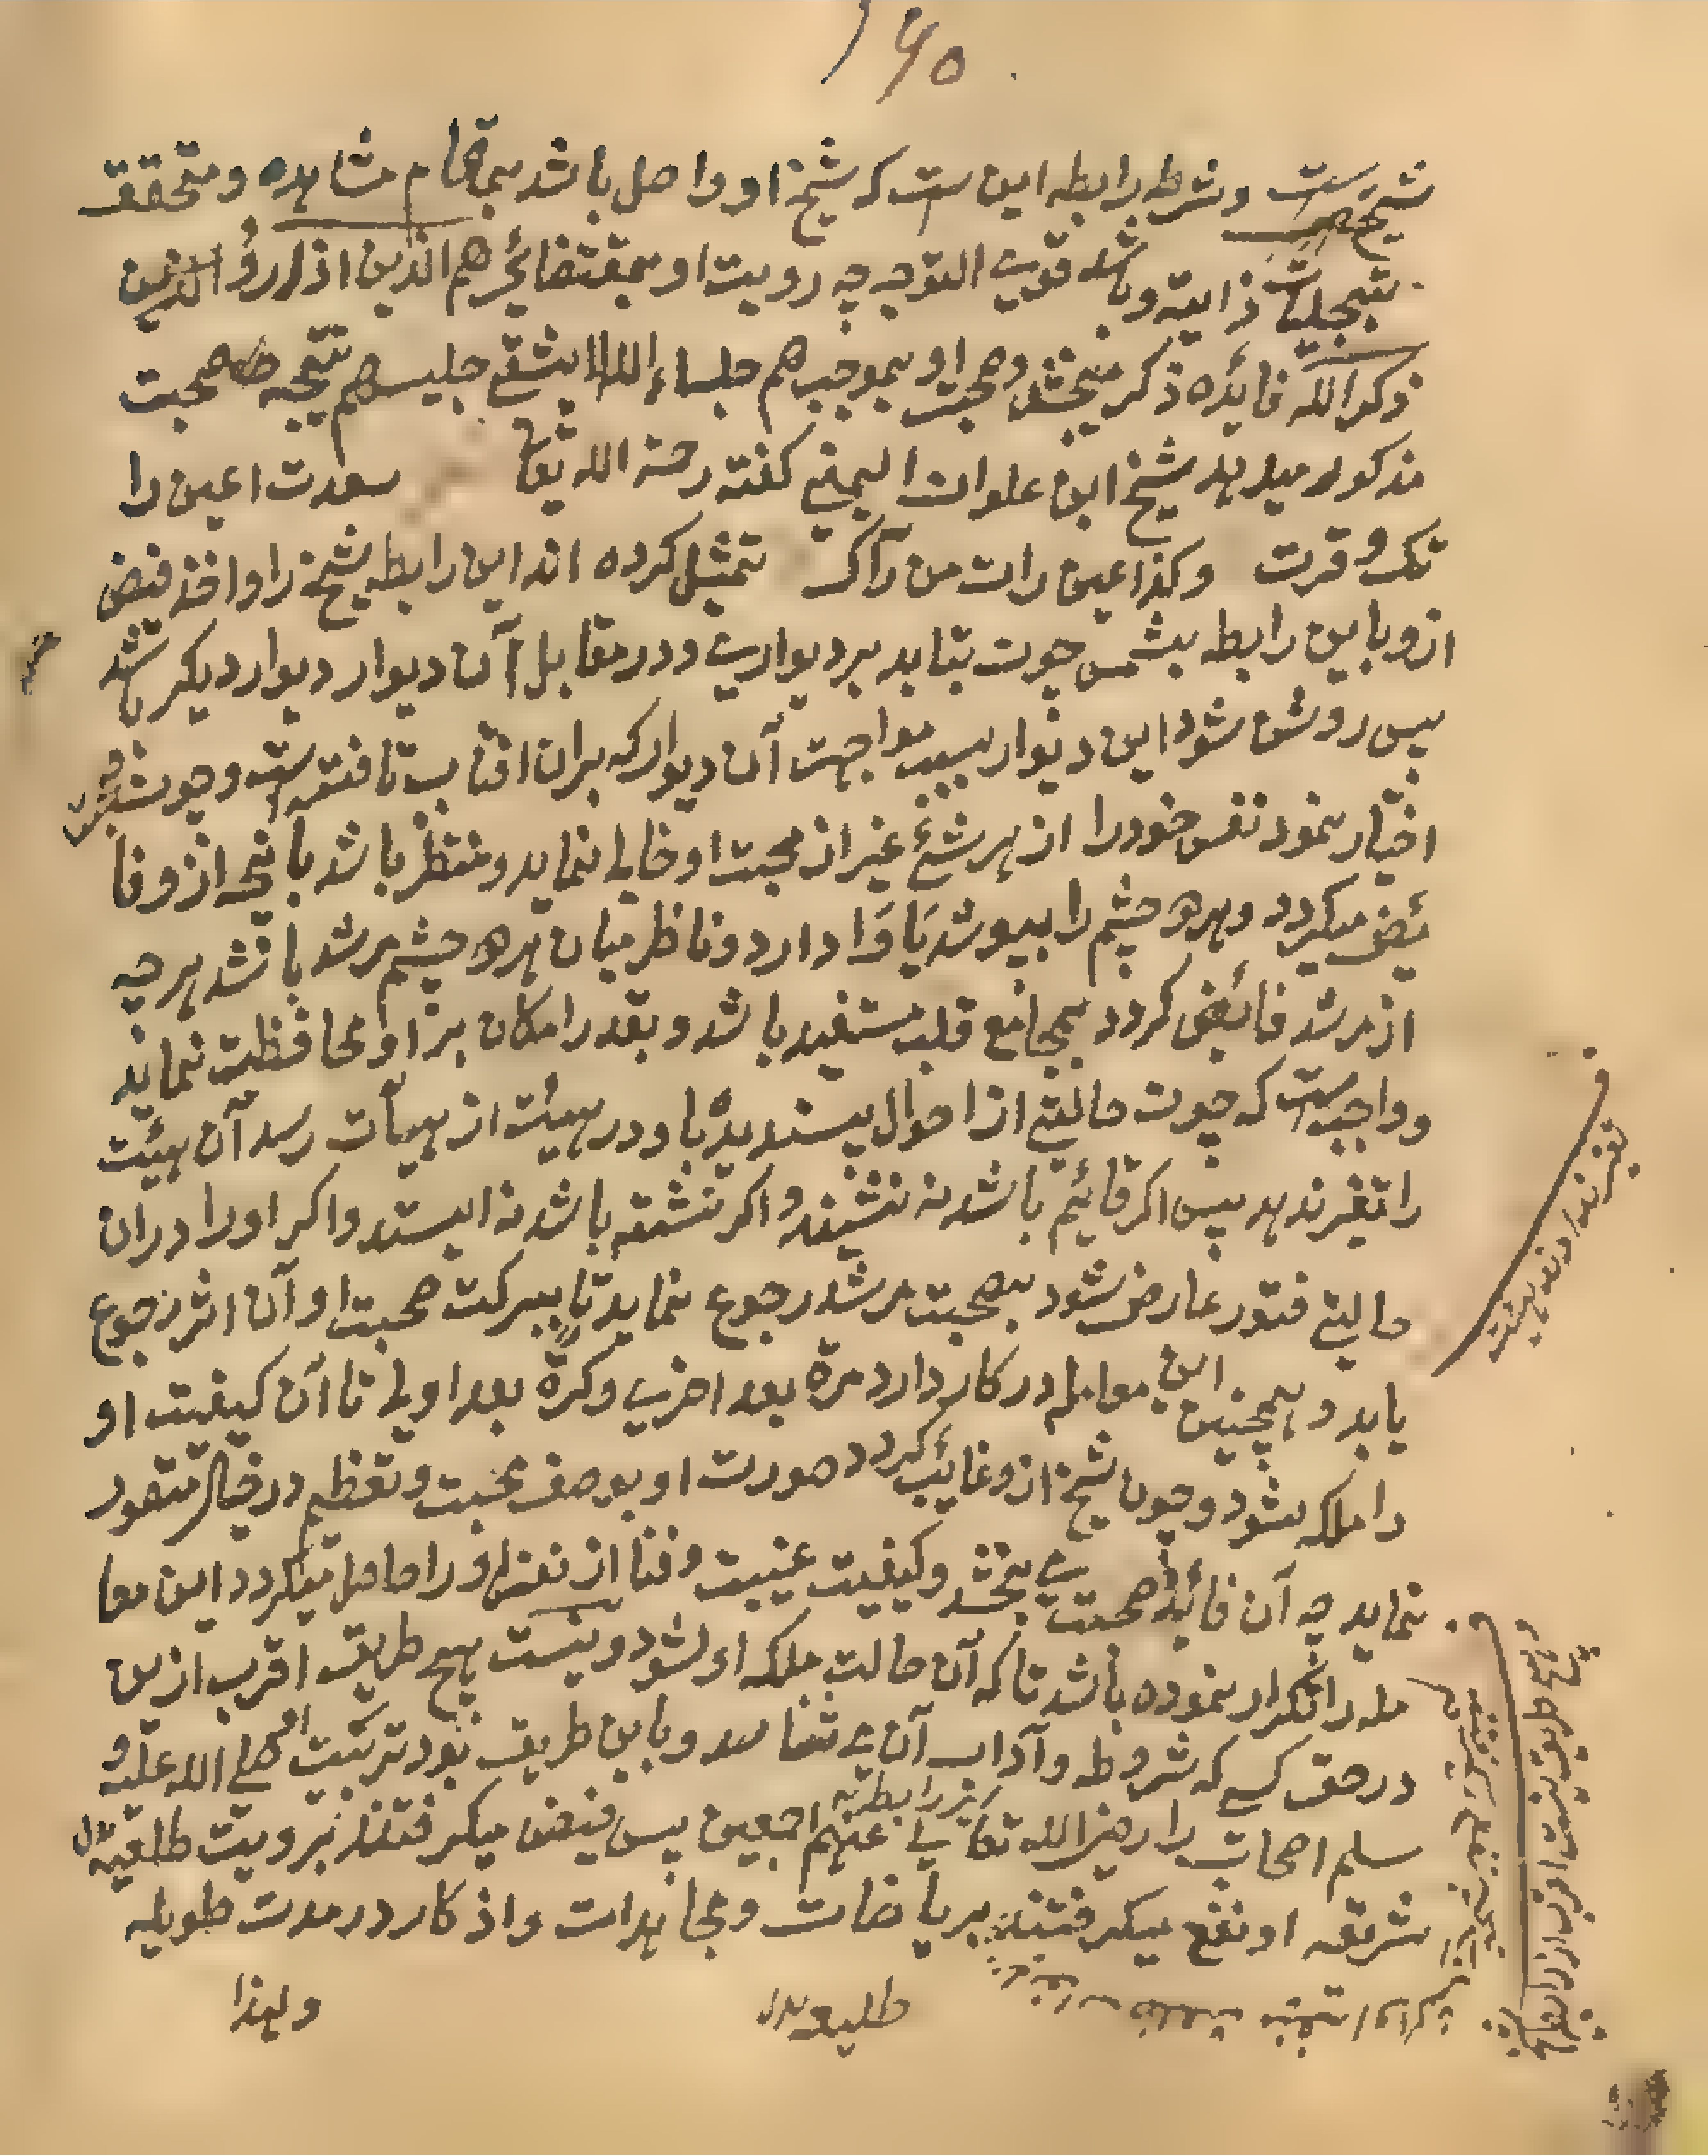 ۱۶۵
شیخ ست و شرط رابطه این ست که شیخ او واصل باشد بمقام مشاهده و متحقق
بتجلیات ذاتیه و باشد قوی التوجه چه رویت او بمقتضائے هم الذین اذا رؤا
ذکر الله فائده ذکر میبخشد و صحبت او بموجب هم جلساء الله لا یشقے جلیسهم نتیجه صحبت
مذکور میدهد شیخ ابن علوان الیمنی گفته رحمة الله تعا سعدت اعین را
تک و قرت وکذا عین رات من رآک تمثیل کرده اند این رابطه شیخ را و اخذ فیض
ازو باین رابطه بشمس چون بتابد بر دیواری و در مقابل آن دیوار دیوار دیگر باشد
پس روشن شود این دیوار بسبب مواجهت آن دیوار که بران افتاب تافته ست و چون صحبت
اختیار نمود نفس خود را از هر شئ غیر از محبت او خالے نماید و منتظر باشد بانچه ازو فا
ئض میگردد و هر دو چشم را بپوشد یا وا دارد و ناظر میان هر دو چشم مرشد باشد هر چه
از مرشد فائض گردد بمجامع قلب مستفید باشد و بقدر امکان بر او محافظت نماید
و واجب ست که چون حالتے از احوال پسندیده با و در هیئت از هیآت رسد آن هیئت
را تغیر ندهد پس اگر قائیم باشد نه نشیند و اگر نشسته باشد نه ایستد و اگر او را دران
حالتے فتور عارض شود بصحبت مرشد رجوع نماید تا ببرکت صحبت او آن اثر رجوع
یابد و همچنین این معامله در کار دارد مرة بعد اخری و کرة بعد اولے تا آن کیفیت او
را ملکه شود و چون شیخ ازو غائب گردد صورت او بوصف محبت و تعظیم در خیال متصور
نماید چه آن فائده صحبت مے بخشد و کیفیت غیبت و فنا از نفس او را حاصل میگردد این معا
مله را تکرار نموده باشد تا که آن حالت ملکه او شود و نیست هیچ طریق اقرب ازین
در حق کسے که شروط و آداب آن مے شناسد و باین طریق بود تربیت او صلے الله علیه و
سلم اصحاب را رضی الله تعالے عنهم اجمعین پس فیض میگرفتند برویت طلعیه
شریفه او نفع میگرفتند بریاضات و مجاهدات و اذکار در مدت طویله
طلیعه بدل
ولهذا
تغیر ندهد
هیچ طریق نیست اقرب ازان